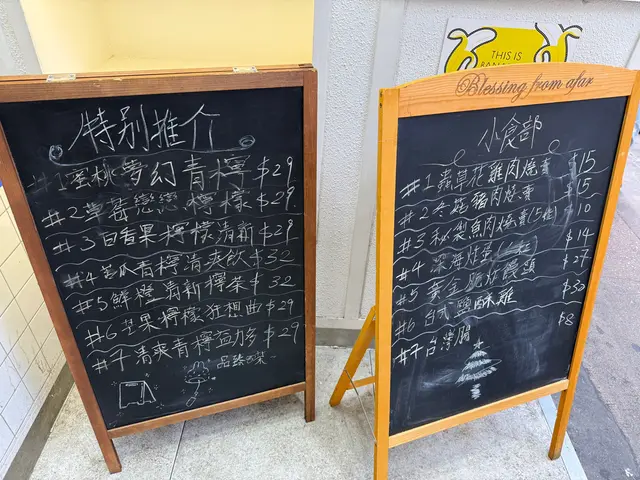 特別推介
#1 蜜桃夢幻青檸 $29
#2 草莓戀戀檸檬 $29
#3 百香果檸檬清新 $29
#4 苦瓜青檸清爽飲 $32
#5 鮮橙清新檸茶 $32
#6 芒果檸檬狂想曲 $29
#7 清爽青檸益力多 $29
THIS IS
Blessing from afar
小食部
#1 蟲草花雞肉燒賣 $15
#2 冬菇豬肉燒賣 $15
#3 秘製魚肉燒賣(5粒) $10
#4 深海炸 $14
#5 黃金脆炸饅頭 $27
#6 台式鹽酥雞 $30
#7 台灣腸 $8